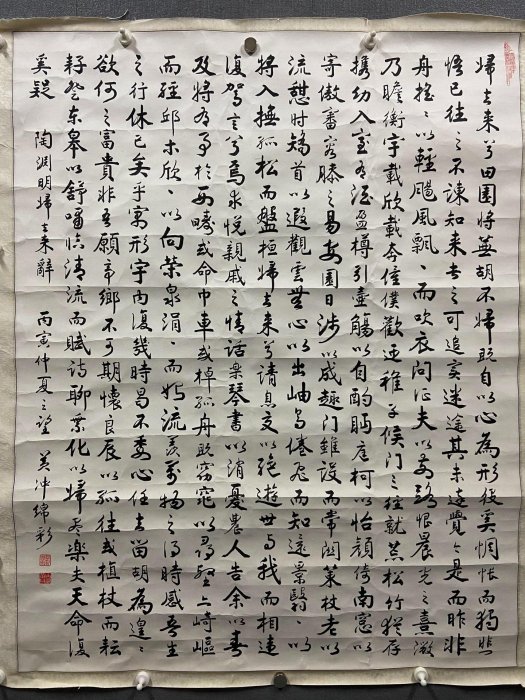 歸去來兮田園將蕪胡不歸既自以心為形役奚惆悵而獨悲
悟已往之不諫知來者之可追寔迷途其未遠覺今是而昨非
舟搖々以輕颺風飄々而吹衣問征夫以前路恨晨光之熹微
乃瞻衡宇載欣載奔僮僕歡迎稚子候門三徑就荒松竹猶存
攜幼入室有酒盈樽引壺觴以自酌眄庭柯以怡顏倚南窗以
寄傲審容膝之易安園日涉以成趣門雖設而常關策杖老以
流憩時矯首以遐觀雲無心以出岫鳥倦飛而知還景翳々以
將入撫孤松而盤桓歸去來兮請息交以絕遊世與我而相違
復駕言兮焉求悅親戚之情話樂琴書以消憂農人告余以春
及將有事於西疇或命巾車或棹孤舟既窈窕以尋壑亦崎嶇
而經邱木欣々以向榮泉涓々而始流羨萬物之得時感吾生
之行休已矣乎寓形宇內復幾時曷不委心任去留胡為遑々
欲何之富貴非吾願帝鄉不可期懷良辰以孤往或植杖而耘
耔登東皋以舒嘯臨清流而賦詩聊乘化以歸盡樂夫天命復
奚疑 陶淵明歸去來辭 丙寅仲夏之望